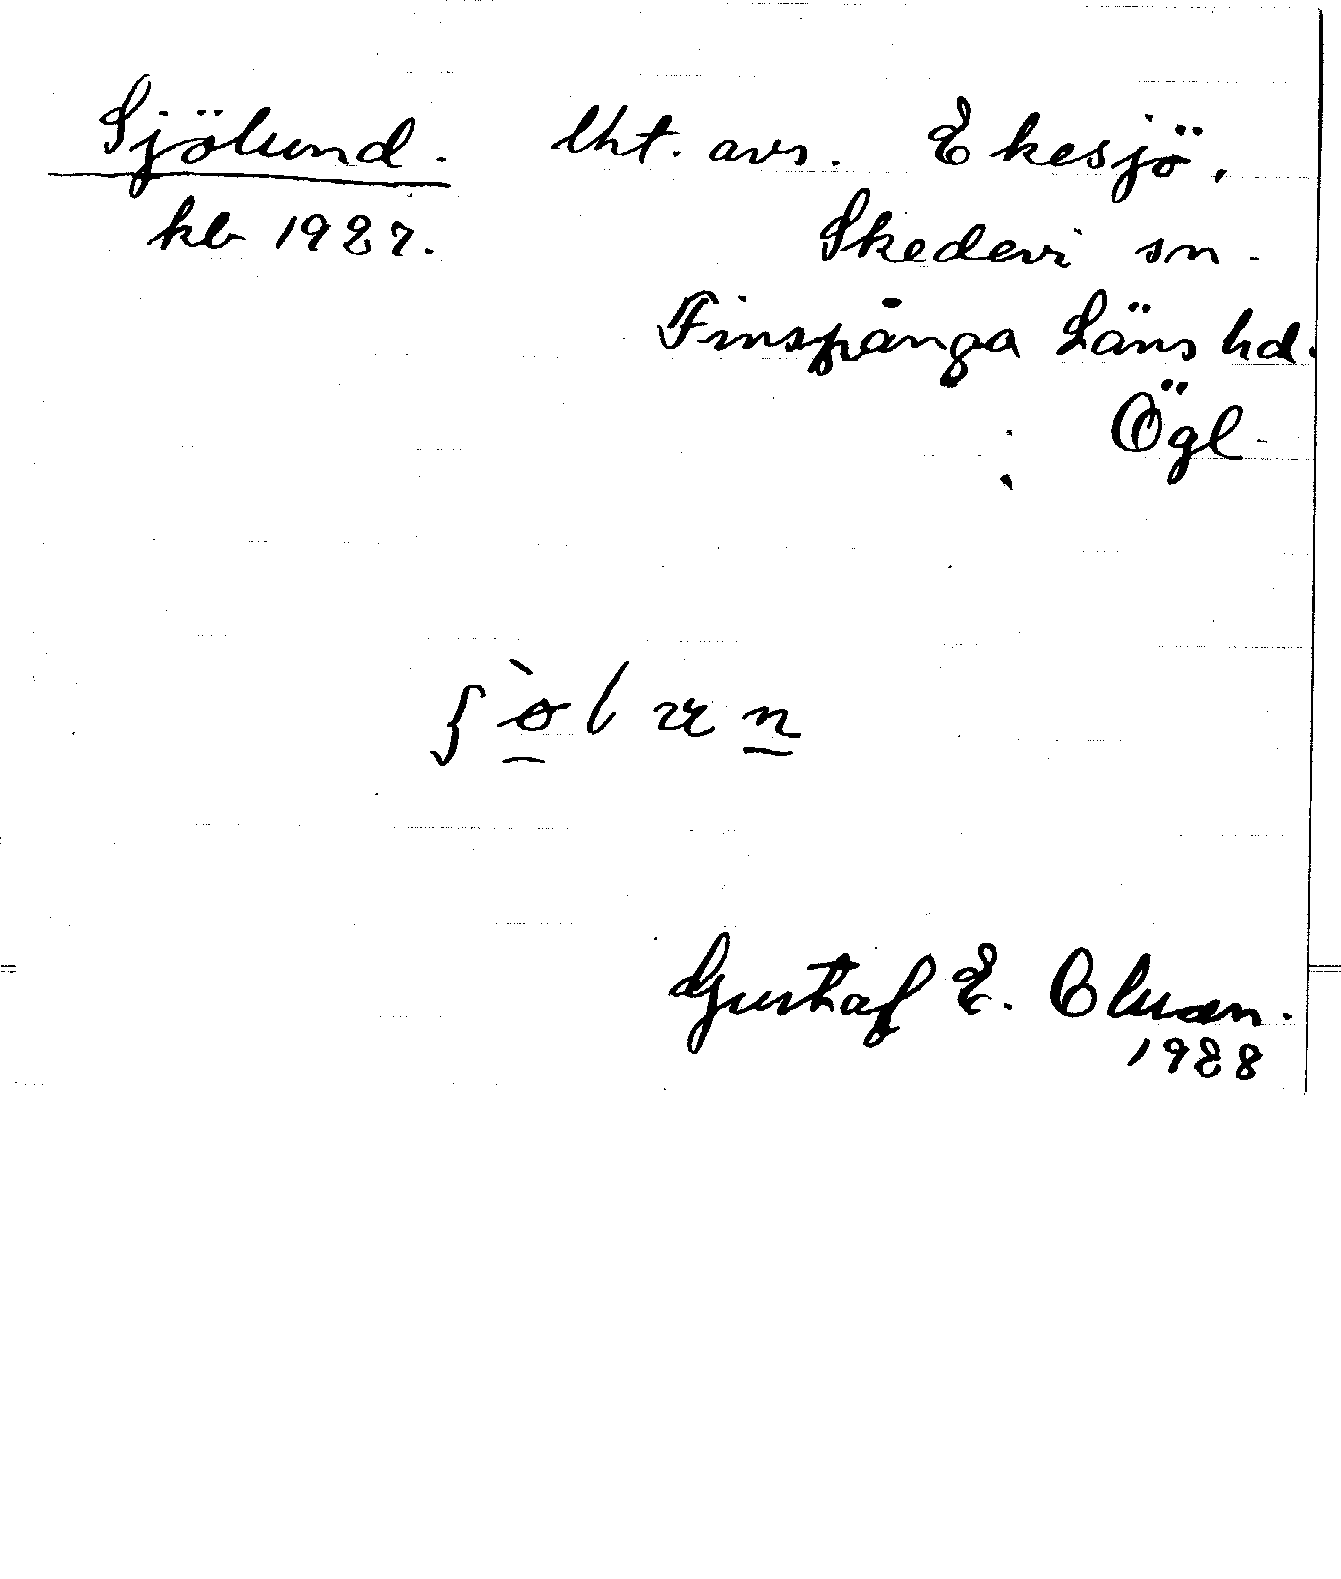 Sjölund. lht. avs. Ekesjö,
kb 1927. Skedevi sn.
Finspånga Läns hd.
Ögl.
Gustaf E.
1928